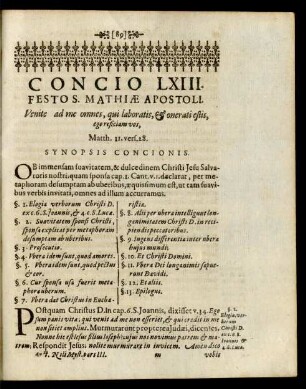 [89]
CONCIO LXIII.
FESTO S. MATHIÆ APOSTOLI.
Venite ad me omnes, qui laboratis, & onerati estis,
ego reficiam vos,
Matth. 11. vers. 28.
SYNOPSIS CONCIONIS.
OB immensam suavitatem, & dulcedinem Christi Jesu Salva-
toris nostri, quam sponsa cap. 1. Cant. v. 1. declarat, per me-
taphoram desumptam ab uberibus, equissimum est, ut tam suavi-
bus verbis invitati, omnes ad illum accurramus.
§. 1. Elogia verborum Christi D.
ex c. 6. S. Joannis, & 4. c. S. Luca.
§. 2. Suavitatem sponsi Christi,
sponsa explicat per metaphoram
desumptam ab uberibus.
§. 3. Prosecutio.
§. 4. Vbera idem sunt, quod amores.
§. 5. Vbera idem sunt, quod pectus
& cor.
§. 6. Cur sponsa usa fuerit meta-
phora uberum.
§. 7. Vbera dat Christus in Eucha-
ristia.
§. 8. Alii per ubera intelligunt lon-
ganimitatem Christi D. in reci-
piendis peccatoribus.
§. 9. Ingens differentia inter ubera
hujus mundi.
§. 10. Et Christi Domini.
§. 11. Vbera Dei longanimis sapue-
runt Davidi.
§. 12. Etaliis.
§. 13. Epilogus.
POstquam Christus D. in cap. 6. S. Joannis, dixisset v. 34. Ego
sum panis vita; qui venit ad me non esuriet, & qui credit in me
non sitiet
Murmurarunt propterea Judæi, dicentes,
Nonne hic est filius filius Joseph; cujus nos novimus patrem & ma-
trem: Respondit Jesus: nolite murmurare in invicem.
§. 1.
Elogia ver-
borum
Christi D.
ex c. 6.
S. Joannis
& 4. S. Luca.
pars III.
m
vobis